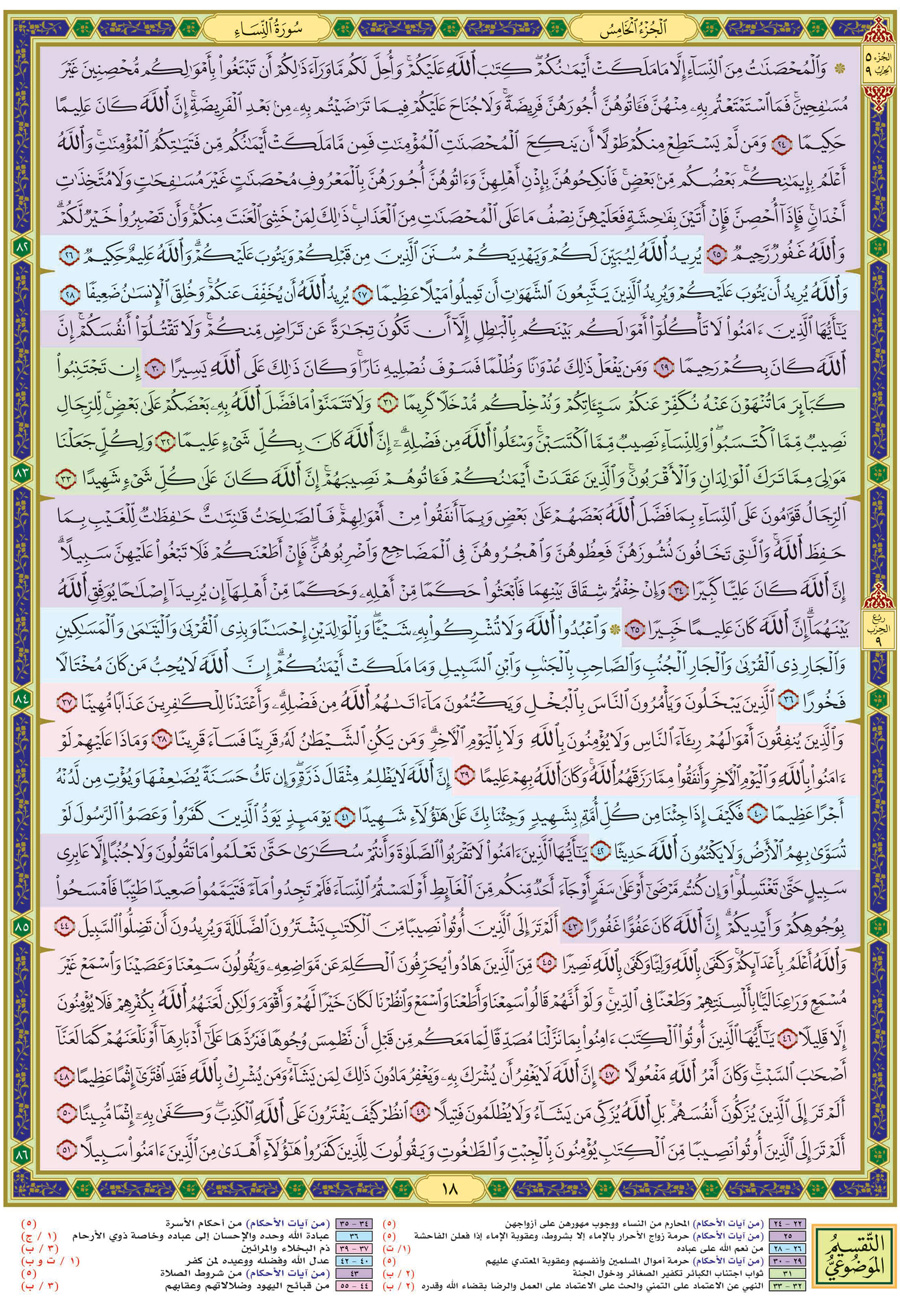 سُورَةُ النِّسَاءِ
الجُزْءُ الخَامِسُ
الجزء ٥
الحزب ٩
۞ وَٱلْمُحْصَنَٰتُ مِنَ ٱلنِّسَآءِ إِلَّا مَا مَلَكَتْ أَيْمَٰنُكُمْ ۖ كِتَٰبَ ٱللَّهِ عَلَيْكُمْ ۚ وَأُحِلَّ لَكُم مَّا وَرَآءَ ذَٰلِكُمْ أَن تَبْتَغُوا۟ بِأَمْوَٰلِكُم مُّحْصِنِينَ غَيْرَ
مُسَٰفِحِينَ ۚ فَمَا ٱسْتَمْتَعْتُم بِهِۦ مِنْهُنَّ فَـَٔاتُوهُنَّ أُجُورَهُنَّ فَرِيضَةً ۚ وَلَا جُنَاحَ عَلَيْكُمْ فِيمَا تَرَٰضَيْتُم بِهِۦ مِنۢ بَعْدِ ٱلْفَرِيضَةِ ۚ إِنَّ ٱللَّهَ كَانَ عَلِيمًا
حَكِيمًا ٢٤ وَمَن لَّمْ يَسْتَطِعْ مِنكُمْ طَوْلًا أَن يَنكِحَ ٱلْمُحْصَنَٰتِ ٱلْمُؤْمِنَٰتِ فَمِن مَّا مَلَكَتْ أَيْمَٰنُكُم مِّن فَتَيَٰتِكُمُ ٱلْمُؤْمِنَٰتِ ۚ وَٱللَّهُ
أَعْلَمُ بِإِيمَٰنِكُم ۚ بَعْضُكُم مِّنۢ بَعْضٍ ۚ فَٱنكِحُوهُنَّ بِإِذْنِ أَهْلِهِنَّ وَءَاتُوهُنَّ أُجُورَهُنَّ بِٱلْمَعْرُوفِ مُحْصَنَٰتٍ غَيْرَ مُسَٰفِحَٰتٍ وَلَا مُتَّخِذَٰتِ
أَخْدَانٍ ۚ فَإِذَآ أُحْصِنَّ فَإِنْ أَتَيْنَ بِفَٰحِشَةٍ فَعَلَيْهِنَّ نِصْفُ مَا عَلَى ٱلْمُحْصَنَٰتِ مِنَ ٱلْعَذَابِ ۚ ذَٰلِكَ لِمَنْ خَشِىَ ٱلْعَنَتَ مِنكُمْ ۚ وَأَن تَصْبِرُوا۟ خَيْرٌ لَّكُمْ ۗ
وَٱللَّهُ غَفُورٌ رَّحِيمٌ ٢٥ يُرِيدُ ٱللَّهُ لِيُبَيِّنَ لَكُمْ وَيَهْدِيَكُمْ سُنَنَ ٱلَّذِينَ مِن قَبْلِكُمْ وَيَتُوبَ عَلَيْكُمْ ۗ وَٱللَّهُ عَلِيمٌ حَكِيمٌ ٢٦
وَٱللَّهُ يُرِيدُ أَن يَتُوبَ عَلَيْكُمْ وَيُرِيدُ ٱلَّذِينَ يَتَّبِعُونَ ٱلشَّهَوَٰتِ أَن تَمِيلُوا۟ مَيْلًا عَظِيمًا ٢٧ يُرِيدُ ٱللَّهُ أَن يُخَفِّفَ عَنكُمْ ۚ وَخُلِقَ ٱلْإِنسَٰنُ ضَعِيفًا ٢٨
يَٰٓأَيُّهَا ٱلَّذِينَ ءَامَنُوا۟ لَا تَأْكُلُوٓا۟ أَمْوَٰلَكُم بَيْنَكُم بِٱلْبَٰطِلِ إِلَّآ أَن تَكُونَ تِجَٰرَةً عَن تَرَاضٍ مِّنكُمْ ۚ وَلَا تَقْتُلُوٓا۟ أَنفُسَكُمْ ۚ إِنَّ
ٱللَّهَ كَانَ بِكُمْ رَحِيمًا ٢٩ وَمَن يَفْعَلْ ذَٰلِكَ عُدْوَٰنًا وَظُلْمًا فَسَوْفَ نُصْلِيهِ نَارًا ۚ وَكَانَ ذَٰلِكَ عَلَى ٱللَّهِ يَسِيرًا ٣٠ إِن تَجْتَنِبُوا۟
كَبَآئِرَ مَا تُنْهَوْنَ عَنْهُ نُكَفِّرْ عَنكُمْ سَيِّـَٔاتِكُمْ وَنُدْخِلْكُم مُّدْخَلًا كَرِيمًا ٣١ وَلَا تَتَمَنَّوْا۟ مَا فَضَّلَ ٱللَّهُ بِهِۦ بَعْضَكُمْ عَلَىٰ بَعْضٍ ۚ لِّلرِّجَالِ
نَصِيبٌ مِّمَّا ٱكْتَسَبُوا۟ ۖ وَلِلنِّسَآءِ نَصِيبٌ مِّمَّا ٱكْتَسَبْنَ ۚ وَسْـَٔلُوا۟ ٱللَّهَ مِن فَضْلِهِۦٓ ۗ إِنَّ ٱللَّهَ كَانَ بِكُلِّ شَىْءٍ عَلِيمًا ٣٢ وَلِكُلٍّ جَعَلْنَا
مَوَٰلِىَ مِمَّا تَرَكَ ٱلْوَٰلِدَانِ وَٱلْأَقْرَبُونَ ۚ وَٱلَّذِينَ عَقَدَتْ أَيْمَٰنُكُمْ فَـَٔاتُوهُمْ نَصِيبَهُمْ ۚ إِنَّ ٱللَّهَ كَانَ عَلَىٰ كُلِّ شَىْءٍ شَهِيدًا ٣٣
ٱلرِّجَالُ قَوَّٰمُونَ عَلَى ٱلنِّسَآءِ بِمَا فَضَّلَ ٱللَّهُ بَعْضَهُمْ عَلَىٰ بَعْضٍ وَبِمَآ أَنفَقُوا۟ مِنْ أَمْوَٰلِهِمْ ۚ فَٱلصَّٰلِحَٰتُ قَٰنِتَٰتٌ حَٰفِظَٰتٌ لِّلْغَيْبِ بِمَا
حَفِظَ ٱللَّهُ ۚ وَٱلَّٰتِى تَخَافُونَ نُشُوزَهُنَّ فَعِظُوهُنَّ وَٱهْجُرُوهُنَّ فِى ٱلْمَضَاجِعِ وَٱضْرِبُوهُنَّ ۖ فَإِنْ أَطَعْنَكُمْ فَلَا تَبْغُوا۟ عَلَيْهِنَّ سَبِيلًا ۗ
إِنَّ ٱللَّهَ كَانَ عَلِيًّا كَبِيرًا ٣٤ وَإِنْ خِفْتُمْ شِقَاقَ بَيْنِهِمَا فَٱبْعَثُوا۟ حَكَمًا مِّنْ أَهْلِهِۦ وَحَكَمًا مِّنْ أَهْلِهَآ إِن يُرِيدَآ إِصْلَٰحًا يُوَفِّقِ ٱللَّهُ
بَيْنَهُمَآ ۗ إِنَّ ٱللَّهَ كَانَ عَلِيمًا خَبِيرًا ٣٥ ۞ وَٱعْبُدُوا۟ ٱللَّهَ وَلَا تُشْرِكُوا۟ بِهِۦ شَيْـًٔا ۖ وَبِٱلْوَٰلِدَيْنِ إِحْسَٰنًا وَبِذِى ٱلْقُرْبَىٰ وَٱلْيَتَٰمَىٰ وَٱلْمَسَٰكِينِ
وَٱلْجَارِ ذِى ٱلْقُرْبَىٰ وَٱلْجَارِ ٱلْجُنُبِ وَٱلصَّاحِبِ بِٱلْجَنۢبِ وَٱبْنِ ٱلسَّبِيلِ وَمَا مَلَكَتْ أَيْمَٰنُكُمْ ۗ إِنَّ ٱللَّهَ لَا يُحِبُّ مَن كَانَ مُخْتَالًا
فَخُورًا ٣٦ ٱلَّذِينَ يَبْخَلُونَ وَيَأْمُرُونَ ٱلنَّاسَ بِٱلْبُخْلِ وَيَكْتُمُونَ مَآ ءَاتَىٰهُمُ ٱللَّهُ مِن فَضْلِهِۦ ۗ وَأَعْتَدْنَا لِلْكَٰفِرِينَ عَذَابًا مُّهِينًا ٣٧
وَٱلَّذِينَ يُنفِقُونَ أَمْوَٰلَهُمْ رِئَآءَ ٱلنَّاسِ وَلَا يُؤْمِنُونَ بِٱللَّهِ وَلَا بِٱلْيَوْمِ ٱلْـَٔاخِرِ ۗ وَمَن يَكُنِ ٱلشَّيْطَٰنُ لَهُۥ قَرِينًا فَسَآءَ قَرِينًا ٣٨ وَمَاذَا عَلَيْهِمْ لَوْ
ءَامَنُوا۟ بِٱللَّهِ وَٱلْيَوْمِ ٱلْـَٔاخِرِ وَأَنفَقُوا۟ مِمَّا رَزَقَهُمُ ٱللَّهُ ۚ وَكَانَ ٱللَّهُ بِهِمْ عَلِيمًا ٣٩ إِنَّ ٱللَّهَ لَا يَظْلِمُ مِثْقَالَ ذَرَّةٍ ۖ وَإِن تَكُ حَسَنَةً يُضَٰعِفْهَا وَيُؤْتِ مِن لَّدُنْهُ
أَجْرًا عَظِيمًا ٤٠ فَكَيْفَ إِذَا جِئْنَا مِن كُلِّ أُمَّةٍۭ بِشَهِيدٍ وَجِئْنَا بِكَ عَلَىٰ هَٰٓؤُلَآءِ شَهِيدًا ٤١ يَوْمَئِذٍ يَوَدُّ ٱلَّذِينَ كَفَرُوا۟ وَعَصَوُا۟ ٱلرَّسُولَ لَوْ
تُسَوَّىٰ بِهِمُ ٱلْأَرْضُ وَلَا يَكْتُمُونَ ٱللَّهَ حَدِيثًا ٤٢ يَٰٓأَيُّهَا ٱلَّذِينَ ءَامَنُوا۟ لَا تَقْرَبُوا۟ ٱلصَّلَوٰةَ وَأَنتُمْ سُكَٰرَىٰ حَتَّىٰ تَعْلَمُوا۟ مَا تَقُولُونَ وَلَا جُنُبًا إِلَّا عَابِرِى
سَبِيلٍ حَتَّىٰ تَغْتَسِلُوا۟ ۚ وَإِن كُنتُم مَّرْضَىٰٓ أَوْ عَلَىٰ سَفَرٍ أَوْ جَآءَ أَحَدٌ مِّنكُم مِّنَ ٱلْغَآئِطِ أَوْ لَٰمَسْتُمُ ٱلنِّسَآءَ فَلَمْ تَجِدُوا۟ مَآءً فَتَيَمَّمُوا۟ صَعِيدًا طَيِّبًا فَٱمْسَحُوا۟
بِوُجُوهِكُمْ وَأَيْدِيكُمْ ۗ إِنَّ ٱللَّهَ كَانَ عَفُوًّا غَفُورًا ٤٣ أَلَمْ تَرَ إِلَى ٱلَّذِينَ أُوتُوا۟ نَصِيبًا مِّنَ ٱلْكِتَٰبِ يَشْتَرُونَ ٱلضَّلَٰلَةَ وَيُرِيدُونَ أَن تَضِلُّوا۟ ٱلسَّبِيلَ ٤٤
وَٱللَّهُ أَعْلَمُ بِأَعْدَآئِكُمْ ۚ وَكَفَىٰ بِٱللَّهِ وَلِيًّا وَكَفَىٰ بِٱللَّهِ نَصِيرًا ٤٥ مِّنَ ٱلَّذِينَ هَادُوا۟ يُحَرِّفُونَ ٱلْكَلِمَ عَن مَّوَاضِعِهِۦ وَيَقُولُونَ سَمِعْنَا وَعَصَيْنَا وَٱسْمَعْ غَيْرَ
مُسْمَعٍ وَرَٰعِنَا لَيًّۢا بِأَلْسِنَتِهِمْ وَطَعْنًا فِى ٱلدِّينِ ۚ وَلَوْ أَنَّهُمْ قَالُوا۟ سَمِعْنَا وَأَطَعْنَا وَٱسْمَعْ وَٱنظُرْنَا لَكَانَ خَيْرًا لَّهُمْ وَأَقْوَمَ وَلَٰكِن لَّعَنَهُمُ ٱللَّهُ بِكُفْرِهِمْ فَلَا يُؤْمِنُونَ
إِلَّا قَلِيلًا ٤٦ يَٰٓأَيُّهَا ٱلَّذِينَ أُوتُوا۟ ٱلْكِتَٰبَ ءَامِنُوا۟ بِمَا نَزَّلْنَا مُصَدِّقًا لِّمَا مَعَكُم مِّن قَبْلِ أَن نَّطْمِسَ وُجُوهًا فَنَرُدَّهَا عَلَىٰٓ أَدْبَارِهَآ أَوْ نَلْعَنَهُمْ كَمَا لَعَنَّآ
أَصْحَٰبَ ٱلسَّبْتِ ۚ وَكَانَ أَمْرُ ٱللَّهِ مَفْعُولًا ٤٧ إِنَّ ٱللَّهَ لَا يَغْفِرُ أَن يُشْرَكَ بِهِۦ وَيَغْفِرُ مَا دُونَ ذَٰلِكَ لِمَن يَشَآءُ ۚ وَمَن يُشْرِكْ بِٱللَّهِ فَقَدِ ٱفْتَرَىٰٓ إِثْمًا عَظِيمًا ٤٨
أَلَمْ تَرَ إِلَى ٱلَّذِينَ يُزَكُّونَ أَنفُسَهُم ۚ بَلِ ٱللَّهُ يُزَكِّى مَن يَشَآءُ وَلَا يُظْلَمُونَ فَتِيلًا ٤٩ ٱنظُرْ كَيْفَ يَفْتَرُونَ عَلَى ٱللَّهِ ٱلْكَذِبَ ۖ وَكَفَىٰ بِهِۦٓ إِثْمًا مُّبِينًا ٥٠
أَلَمْ تَرَ إِلَى ٱلَّذِينَ أُوتُوا۟ نَصِيبًا مِّنَ ٱلْكِتَٰبِ يُؤْمِنُونَ بِٱلْجِبْتِ وَٱلطَّٰغُوتِ وَيَقُولُونَ لِلَّذِينَ كَفَرُوا۟ هَٰٓؤُلَآءِ أَهْدَىٰ مِنَ ٱلَّذِينَ ءَامَنُوا۟ سَبِيلًا ٥١
ربع
الحزب
٩
٨٢
٨٣
٨٤
٨٥
٨٦
١٨
التقسيم
الموضوعي
٢٢ - ٢٤ (من آيات الأحكام) المحارم من النساء ووجوب مهورهن على أزواجهن (٥)
٢٥ (من آيات الأحكام) حرمة زواج الأحرار بالإماء إلا بشروط، وعقوبة الإماء إذا فعلن الفاحشة (٥)
٢٦ - ٢٨ من نعم الله على عباده (١/ ت)
٢٩ - ٣٠ (من آيات الأحكام) حرمة أموال المسلمين وأنفسهم وعقوبة المعتدي عليهم (٥)
٣١ ثواب اجتناب الكبائر تكفير الصغائر ودخول الجنة (٢ / ب)
٣٢ - ٣٣ النهي عن الاعتماد على التمني والحث على الاعتماد على العمل والرضا بقضاء الله وقدره (٢ / ب)
٣٤ - ٣٥ (من آيات الأحكام) من أحكام الأسرة (٥)
٣٦ عبادة الله وحده والإحسان إلى عباده وخاصة ذوي الأرحام (١ / ج)
٣٧ - ٣٩ ذم البخلاء والمرائين (٣ / ب)
٤٠ - ٤٢ عدل الله وفضله ووعيده لمن كفر (١ / ت و ب)
٤٣ (من آيات الأحكام) من شروط الصلاة (٥)
٤٤ - ٥٥ من قبائح اليهود وضلالاتهم وعقابهم (٣ / ب)